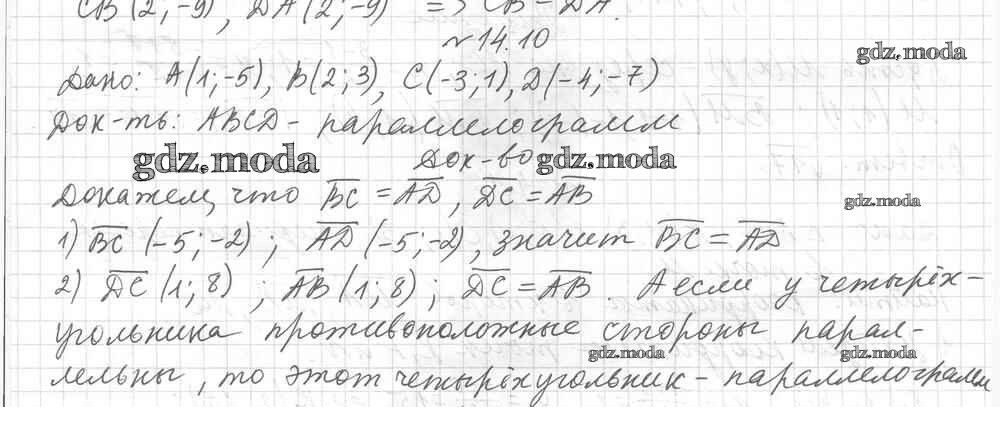 CB(2;-9), DA(2;-9) => CB=DA.
№14.10
gdz.moda
Дано: A(1;-5), B(2;3), C(-3;1), D(-4;-7)
Док-ть: ABCD - параллелограмм
gdz.moda Док-во gdz.moda
Докажем, что BC = AD, DC = AB
gdz.moda
1) BC (-5;-2); AD (-5;-2), значит BC = AD
2) DC (1;8); AB (1;8); DC = AB. А если у четырёх-
угольника противоположные стороны парал-
gdz.moda gdz.moda
лельны, то этот четырёхугольник - параллелограмм